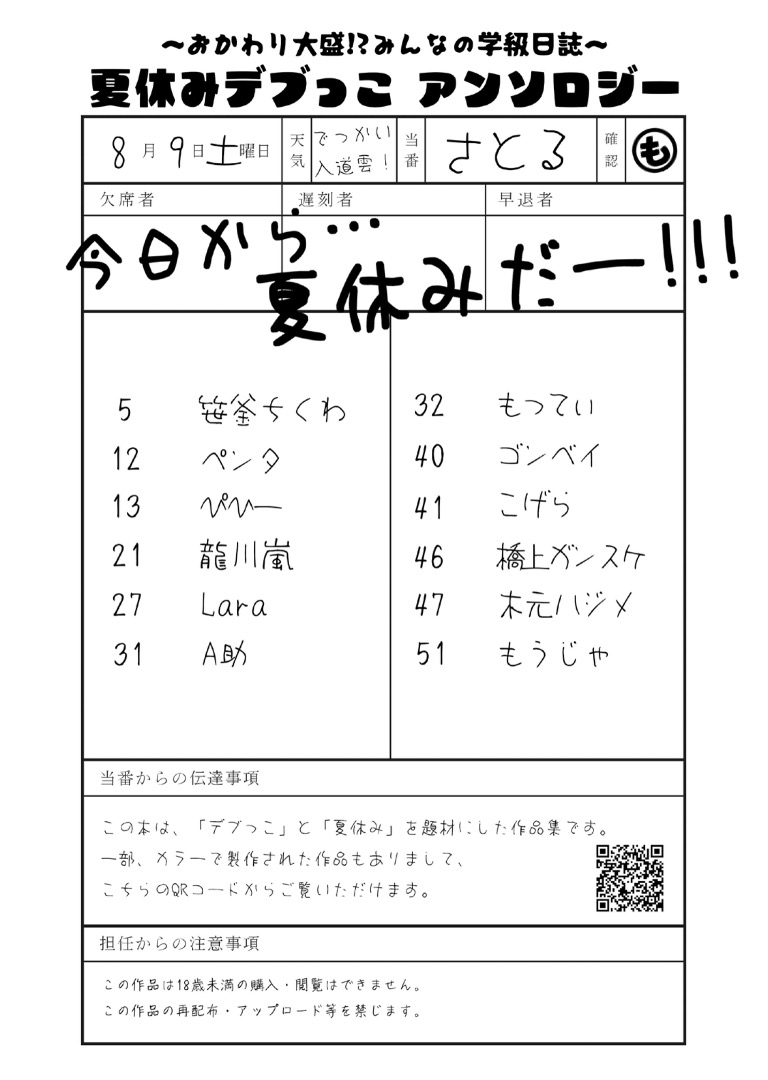 ～おかわり大盛!?みんなの学級日誌～
夏休みデブっこ アンソロジー
8月9日土曜日 天気 でっかい入道雲！ 当番 さとる 確認 も
欠席者 遅刻者 早退者
今日から…
夏休みだー!!!
5 笹釜ちくわ
12 ペンタ
13 ぴひー
21 龍川嵐
27 Lara
31 A助
32 もってぃ
40 ゴンベイ
41 こげら
46 橋上ガンスケ
47 木元ハジメ
51 もうじゃ
当番からの伝達事項
この本は、「デブっこ」と「夏休み」を題材にした作品集です。
一部、カラーで製作された作品もありまして、
こちらのQRコードからご覧いただけます。
担任からの注意事項
この作品は18歳未満の購入・閲覧はできません。
この作品の再配布・アップロード等を禁じます。